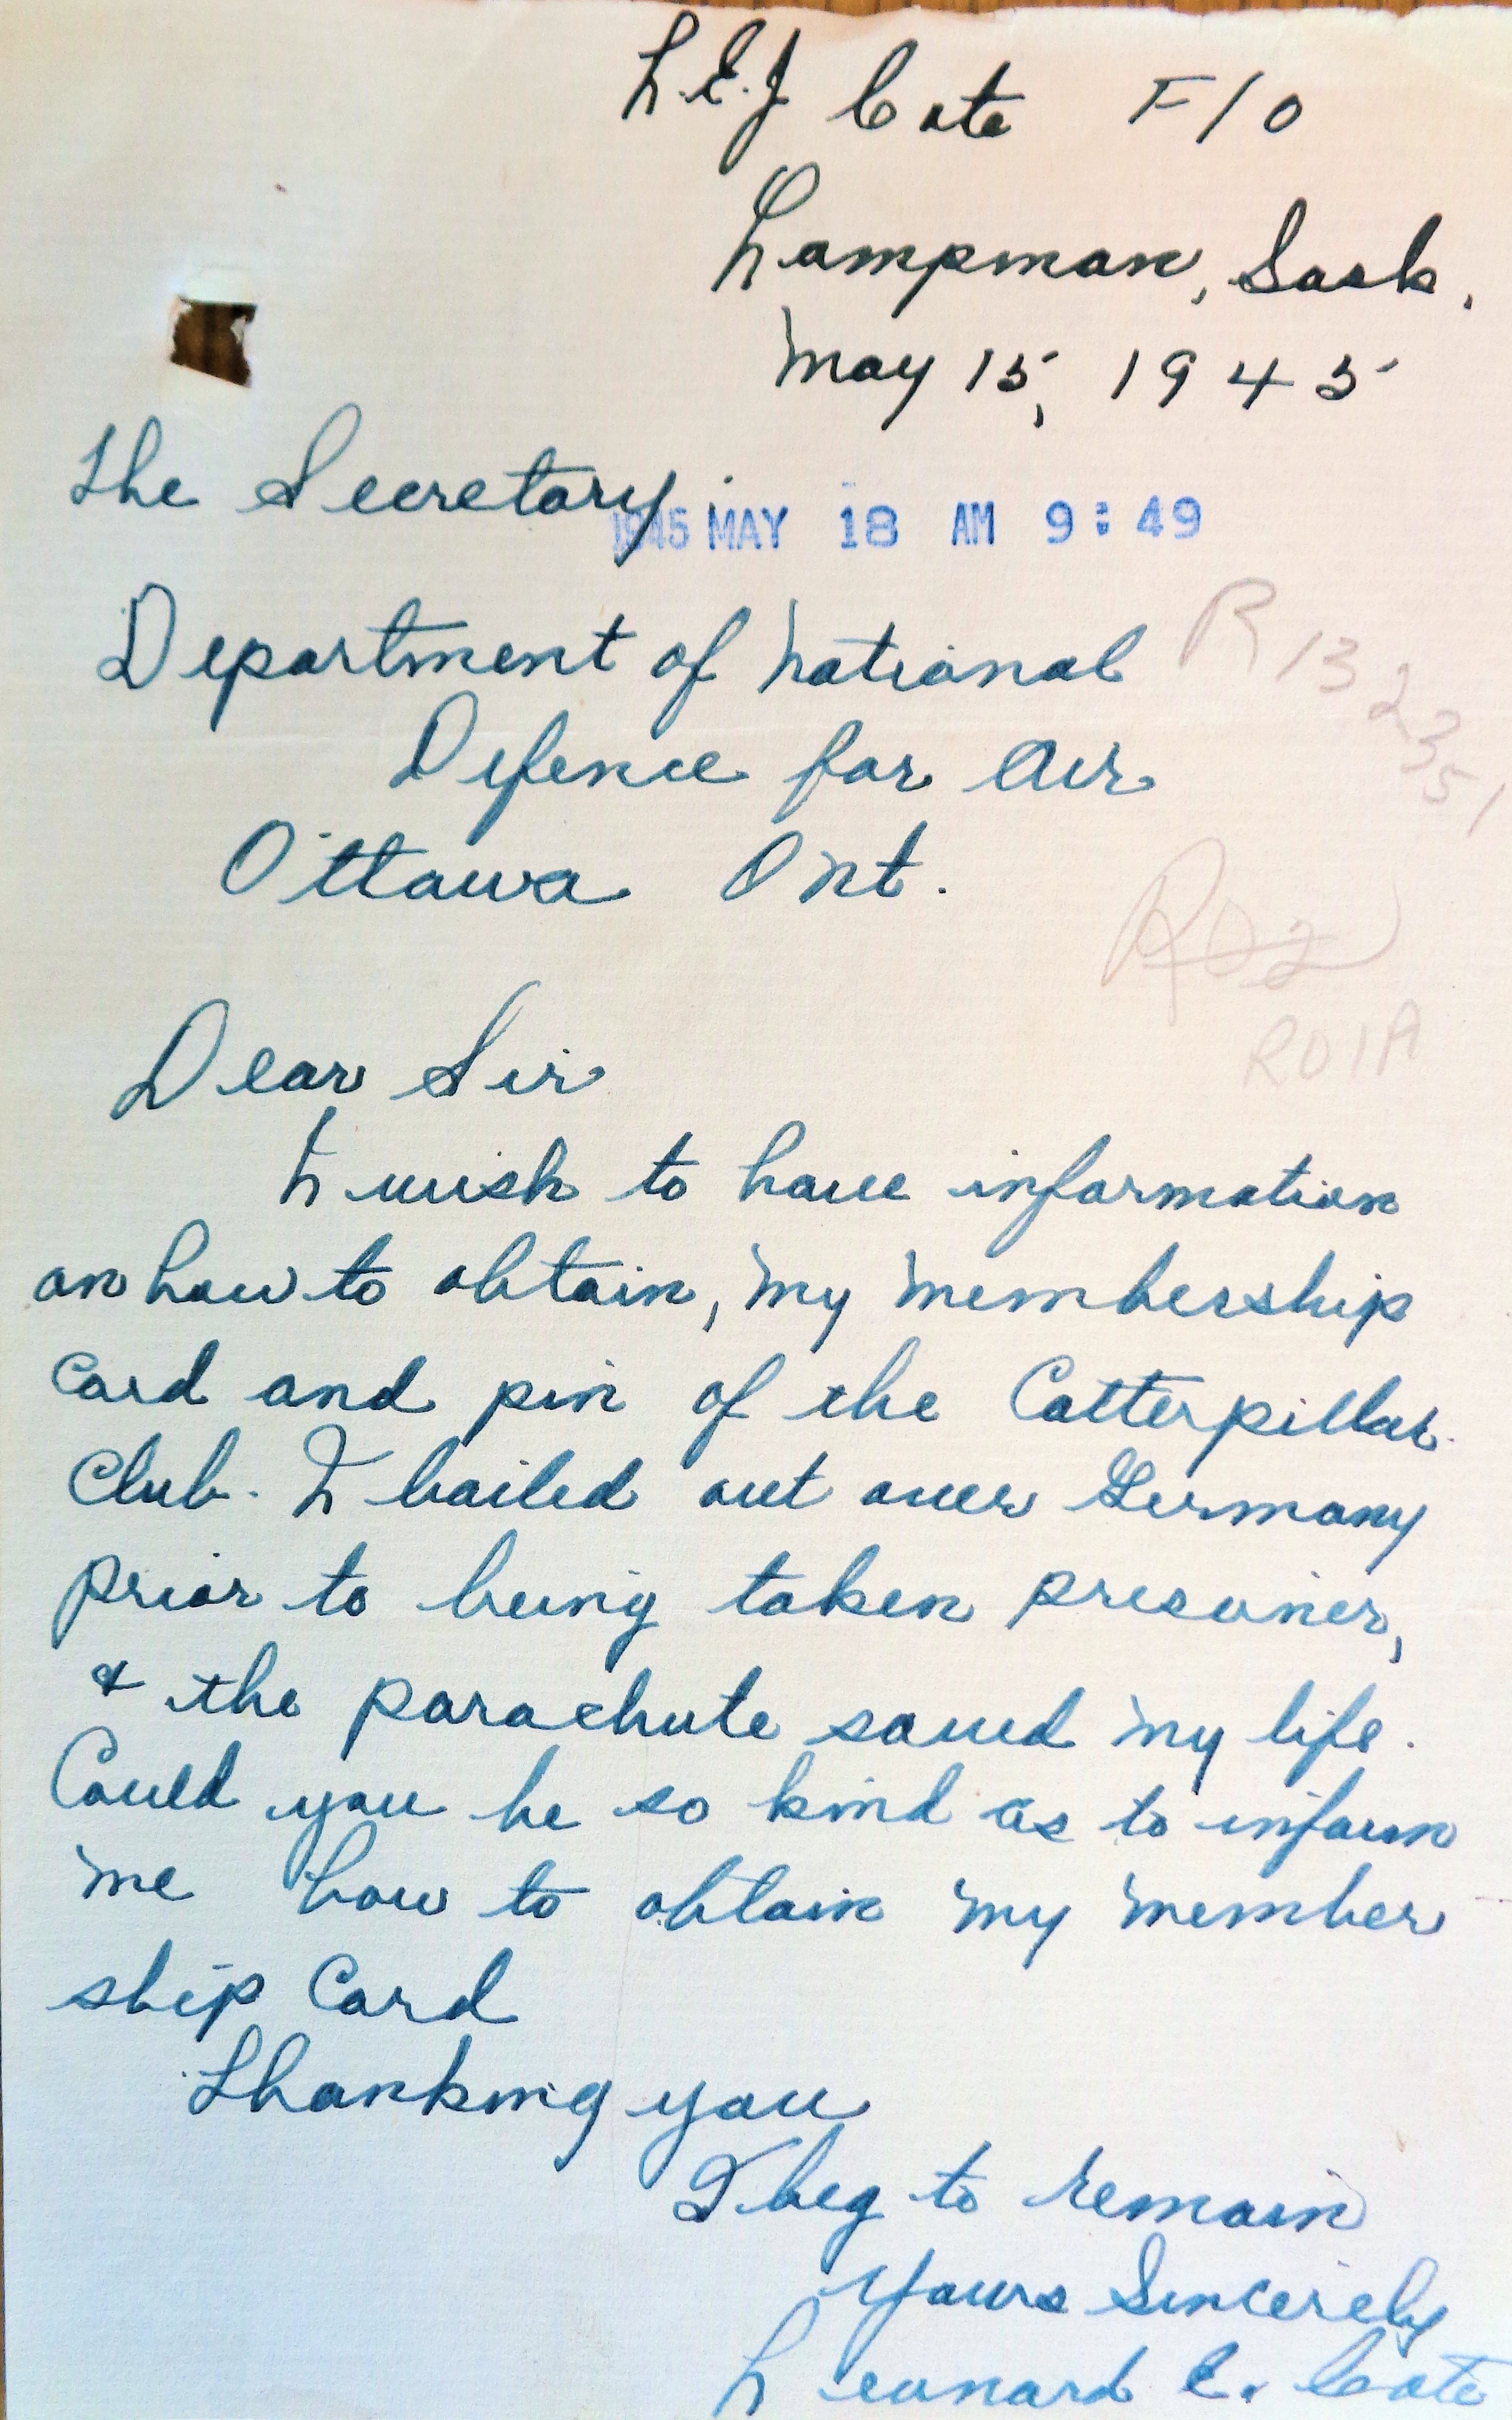 L.E.J Cote F/O
Lampman, Sask.
May 15, 1945
The Secretary.
1945 MAY 18 AM 9:49
Department of National
R132351
Defence for Air
Ottawa Ont.
R02
R01A
Dear Sir
I wish to have information
on how to obtain, my membership
card and pin of the Catterpillar
Club. I bailed out over Germany
prior to being taken presoner,
& the parachute saved my life.
Could you be so kind as to inform
me how to obtain my member
ship Card
Thanking you
I beg to remain
Yours Sincerely
Leonard E. Cote